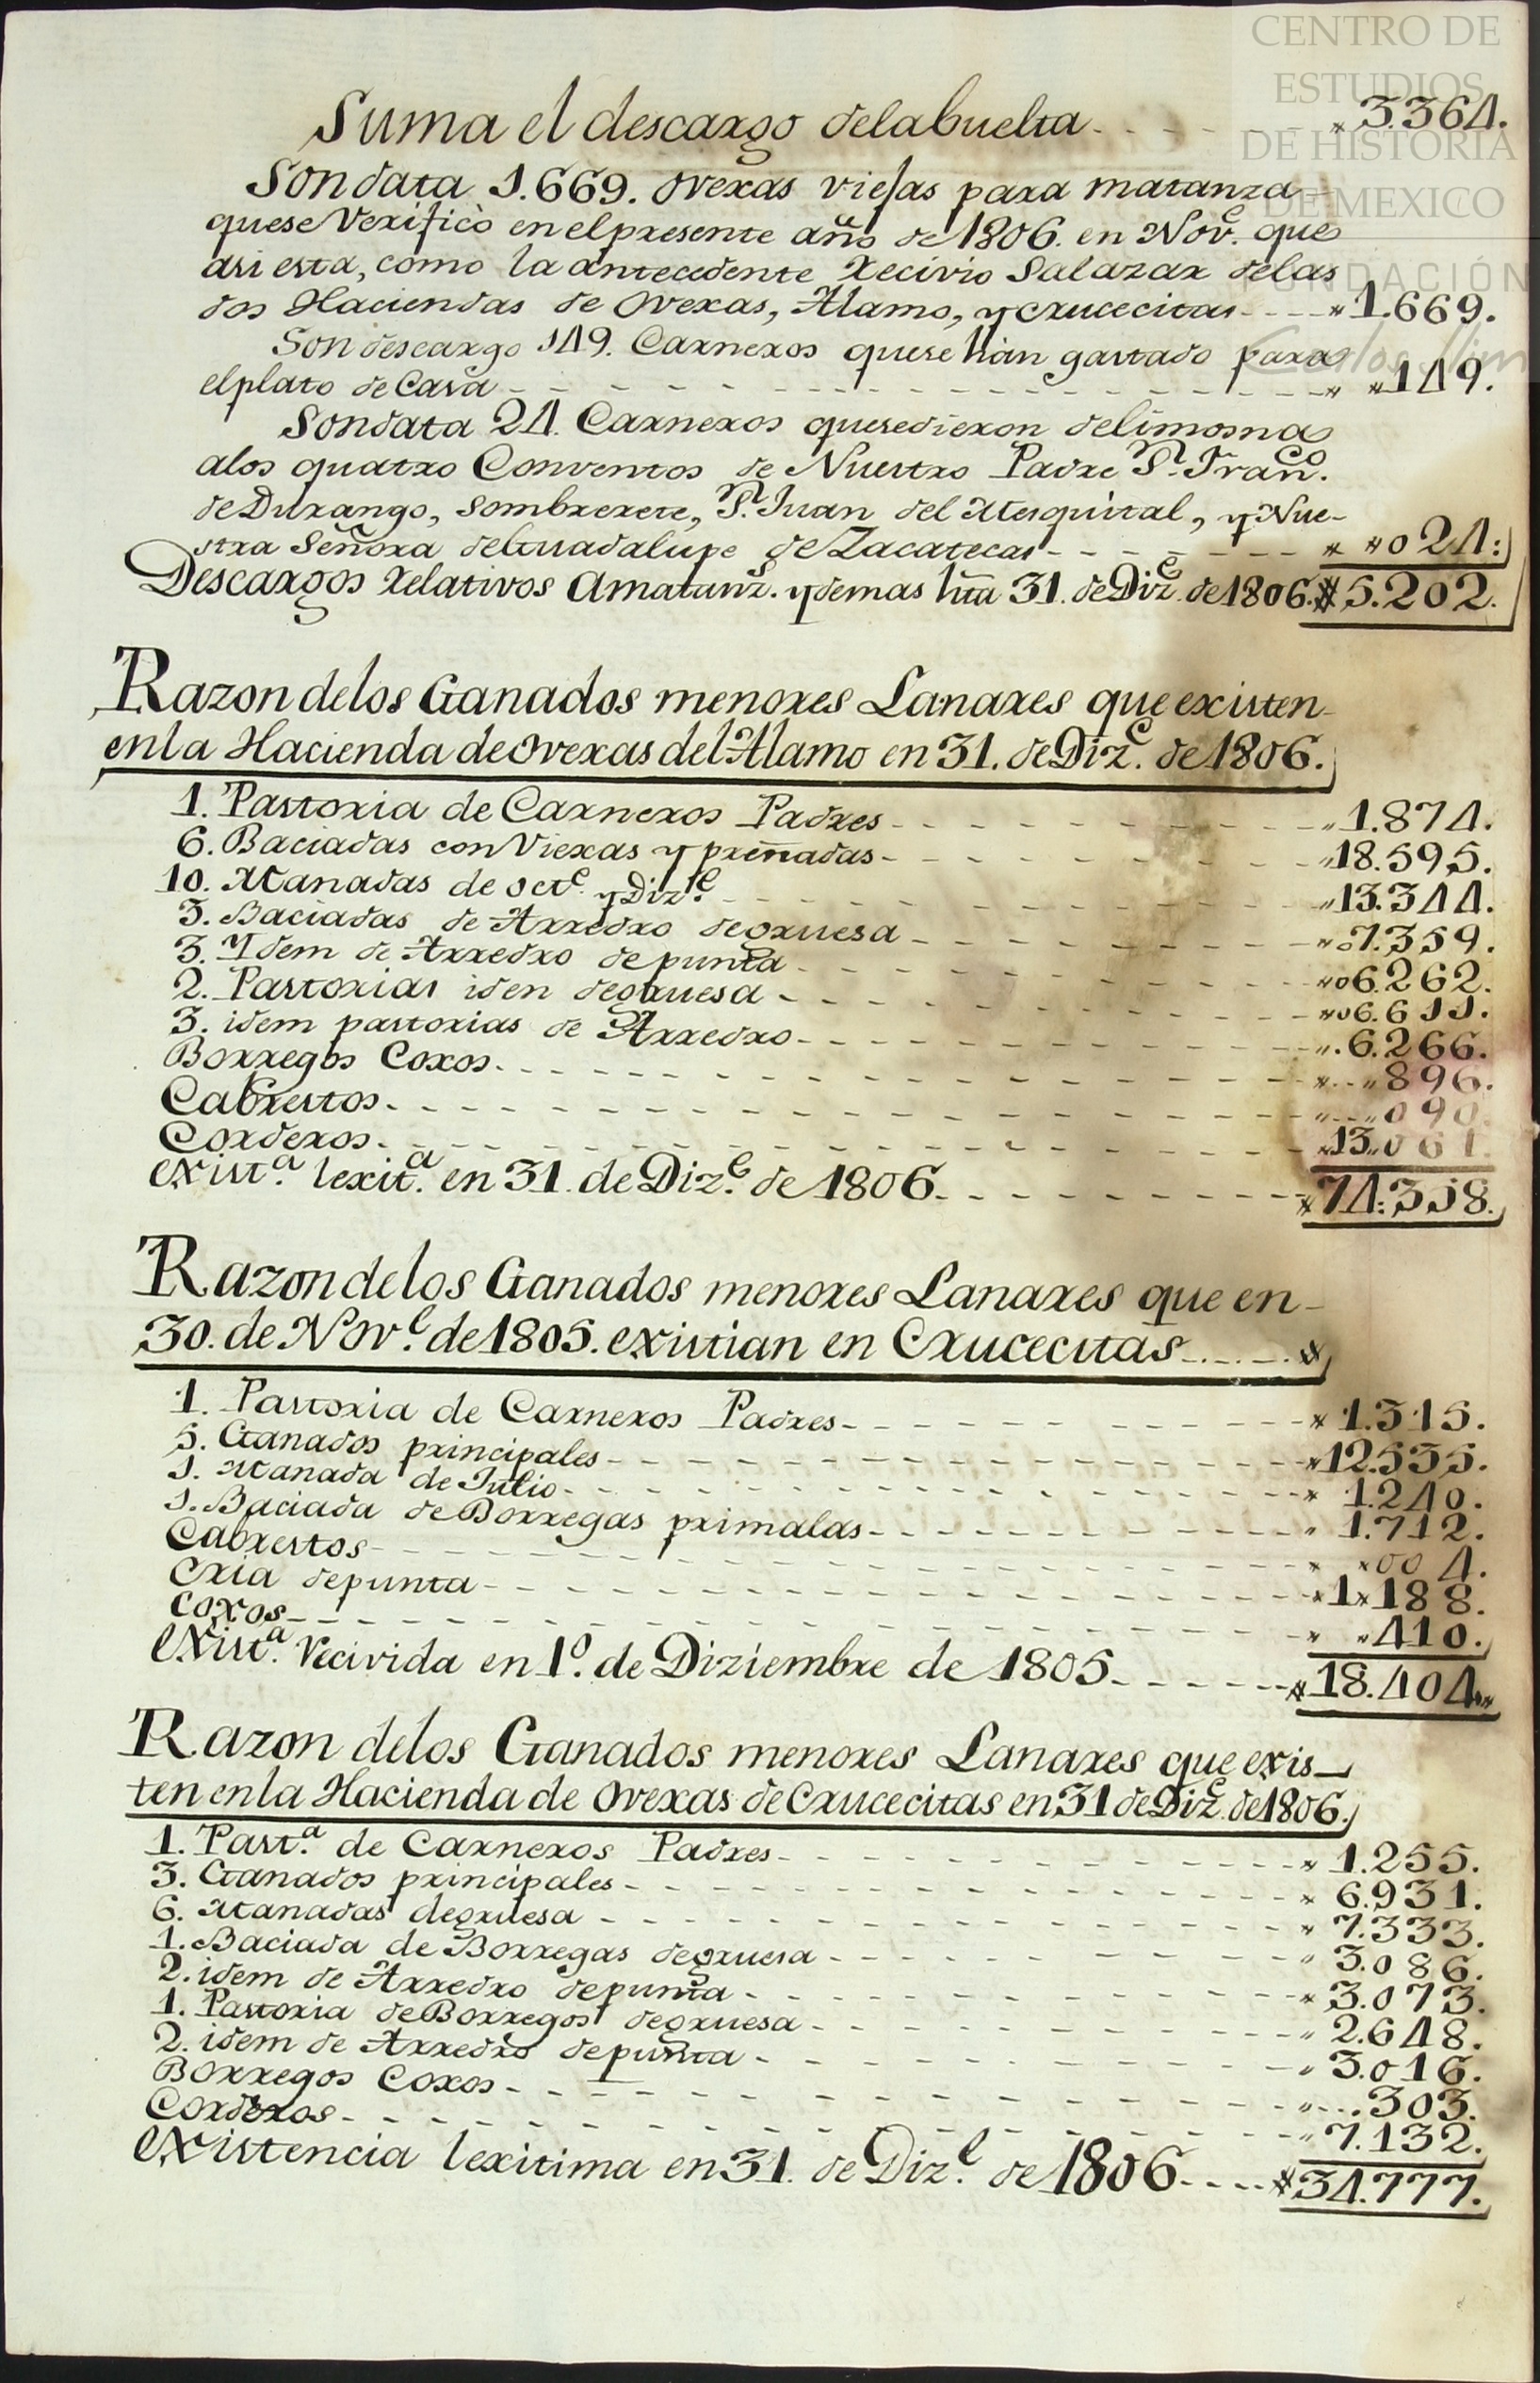 CENTRO DE
ESTUDIOS
DE HISTORIA
DE MEXICO
FUNDACIÓN
Carlos Slim
Suma el descargo delabuelta - - - - - " 3.364.
Son data 1.669. ovexas viejas para matanza
quese Verificò enelpresente año de 1806. en Nov.e que
asi esta, como la antecedente recivio Salazar delas
dos Haciendas de ovexas, Alamo, y crucecitas - - - - " 1.669.
Son descargo 149. Carneros quese hàn gastado para
elplato de Casa - - - - - - - - - - - - " " 149.
Son data 24. Carneros quesedieron delimosna
alos quatro Conventos de Nuestro Padre S.n Fran.co
de Durango, Sombrerete, S.n Juan del Mesquital, y Nue-
stra Señora deGuadalupe de Zacatecas - - - - - - " "024:
Descargos relativos Amatanz.s y demas hta 31. de Diz.e de 1806. " 5.202.
Razon delos Ganados menores Lanares que existen
enla Hacienda de ovexas del Alamo en 31. de Diz.e de 1806.
1. Pastoria de Carneros Padres - - - - - - - - - " 1.874.
6. Baciadas con Viexas y preñadas - - - - - - - - " 18.595.
10. Manadas de Oct.e y Diz.e - - - - - - - - - " 13.344.
3. Baciadas de Arredro degruesa - - - - - - - - " "7.359.
3. Ydem de Arredro depunta - - - - - - - - - "06.262.
2. Pastorias iden degruesa - - - - - - - - - "06.611.
3. idem pastorias de Arredro - - - - - - - - - ". 6.266.
Borregos Coxos. - - - - - - - - - - - " - - " 896.
Cabrestos. - - - - - - - - - - - - " - - " 090.
Corderos. - - - - - - - - - - - - "13.061.
exist.a lexit.a en 31. de Diz.e de 1806. - - - - - - - " 74.358.
Razon delos Ganados menores Lanares que en-
30. de Nov.e de 1805. existian en Crucecitas - - - - "
1. Pastoria de Carneros Padres - - - - - - - - " 1.315.
5. Ganados principales - - - - - - - - - - - " 12.535.
1. Manada de Julio - - - - - - - - - - - " 1.240.
1. Baciada de Borregas primalas - - - - - - - - " 1.712.
Cabrestos - - - - - - - - - - - - " "00 4.
Cria depunta - - - - - - - - - - - - " 1"188.
Coxos - - - - - - - - - - - - - " "410.
exist.a recivida en 1.o de Diziembre de 1805. - - - - - " 18.404"
Razon delos Ganados menores Lanares que exis-
ten enla Hacienda de ovexas de Crucecitas en 31 de Diz.e de 1806.
1. Past.a de Carneros Padres - - - - - - - - - " 1.255.
3. Ganados principales - - - - - - - - - - - " 6.931.
6. Manadas degruesa - - - - - - - - - - - " 7.333.
1. Baciada de Borregas degruesa - - - - - - - - " 3.086.
2. idem de Arredro depunta - - - - - - - - - " 3.073.
1. Pastoria de Borregos degruesa - - - - - - - - " 2.648.
2. idem de Arredro depunta - - - - - - - - - " 3.016.
Borregos Coxos - - - - - - - - - - - " - - . 303.
Corderos - - - - - - - - - - - - - " 7.132.
existencia lexitima en 31. de Diz.e de 1806. - - - - " 34.777.